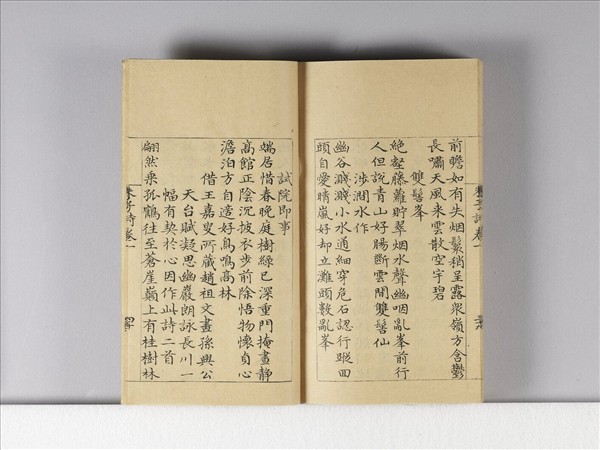 前瞻如有失烟鬟稍呈露眾嶺方含鬱
長嘯天風来雲散空宇碧
雙髻峯
絕壑藤蘿貯翠烟水聲幽咽亂峯前行
人但說青山好腸斷雲間雙髻仙
涉澗水作
幽谷濺濺小水通細穿危石認行蹤回
頭自愛晴嵐好却立灘頭數亂峯
試院即事
端居惜春晚庭樹綠已深重門掩晝靜
高館正陰沉披衣步前除悟物懷貞心
澹泊方自好鳥鳴高林
借王嘉叟所藏趙祖文畫孫興公
天台賦凝思幽巖朗詠長川一
幅有契於心因作此詩二首
翩然乗孤鶴往至蒼崖巔上有桂樹林